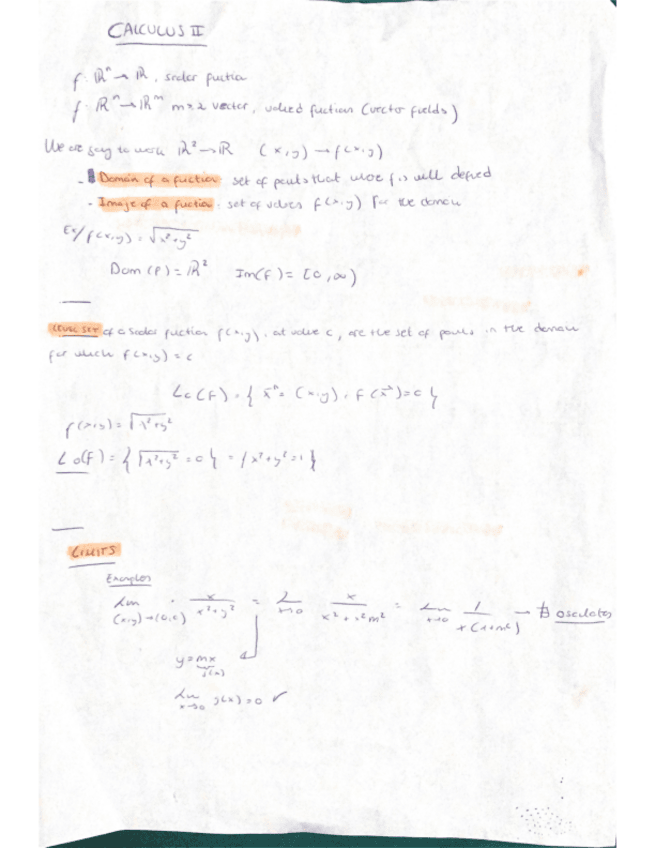 CALCULUS II
f: ℝⁿ → ℝ, scalar fuction
f: ℝⁿ → ℝᵐ m≥2 vector, valued fuctions (vector fields)
We are going to work ℝ² → ℝ (x,y) → f(x,y)
- Domain of a fuction: set of points that where f is well defined
- Image of a fuction: set of values f(x,y) for the domain
Ex/ f(x,y) = √x²+y²
Dom (f) = ℝ² Im(F) = [0,∞)
LEVEL SET of a scalar fuction f(x,y), at value c, are the set of points in the domain
for which f(x,y) = c
Lc(F) = { x⃗ = (x,y), F(x⃗) = c }
f(x,y) = √x²+y²
L0(F) = { √x²+y² = 0 } = { x²+y² = 1 }
LIMITS
Examples
lim (x,y)→(0,0) x/x²+y² = lim x→0 x/x²+x²m² = lim x→0 1/x(1+m²) → ∄ oscilates
y = mx
g(x)
lim x→0 g(x) = 0 ✓